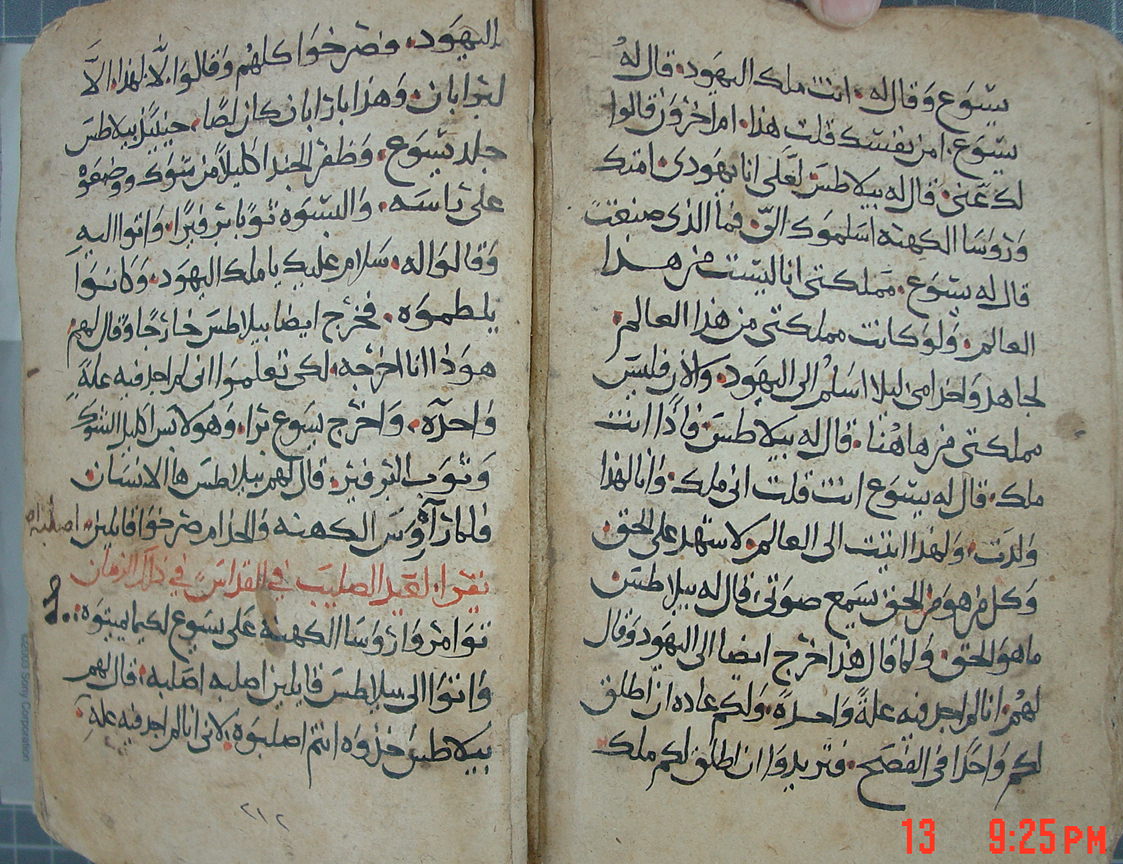 يسوع وقال له. انت ملك اليهود. قال له
يسوع. امن نفسك قلت هذا. ام اخرون قالوا
لك عني. قال له بيلاطس لعلي انا يهودي. امتك
وروسا الكهنة اسلموك الي. فما الذي صنعت
قال له يسوع. مملكتي انا ليست من هذا
العالم. ولو كانت مملكتي من هذا العالم.
لجاهد وخدامي ليلا اسلم الى اليهود. والان فليس
مملكتي من هاهنا. قال له بيلاطس فاذا انت
ملك. قال له يسوع انت قلت اني ملك. وانا لهذا
ولدت. ولهذا اتيت الى العالم. لاشهد على الحق.
وكل من هو من الحق يسمع صوتي. قال له بيلاطس
ما هو الحق. ولما قال هذا خرج ايضا الى اليهود وقال
لهم. انا لم اجد فيه علة واحدة. ولكم عاده ان اطلق
لكم واحدا في الفصح. فتريدوا ان اطلق لكم ملك
اليهود. فصرخوا كلهم وقالوا. لا لهذا. الا
لبرابان. وهذا بارابان كان لصا. حينيذ بيلاطس
جلد يسوع. وظفر الجند اكليلا من شوك ووضعوه
على راسه. والبسوه ثوبا برفيرا. واتوا اليه
وقالوا له. سلام عليك يا ملك اليهود. وكانوا
يلطموه. فخرج ايضا بيلاطس خارجا وقال لهم
هوذا انا اخرجه. لكي تعلموا اني لم اجد فيه علة
واحدة. واخرج يسوع برا. وهو لابس اكليل الشوك
وثوب البرفير. قال لهم بيلاطس ها الانسان
فلما راوه روس الكهنه والخدام صرخوا قايلين. اصلبه
نقرا. لعيد الصليب في القداس في ذلك الزمان
توامروا روسا الكهنة على يسوع لكيما يميتوه.
واتوا الى بيلاطس قايلين اصلبه اصلبه. قال لهم
بيلاطس خذوه انتم اصلبوه. لاني انا لم اجد فيه علة.
٢١٢
13 9:25 PM
©2003 Sony Corporation